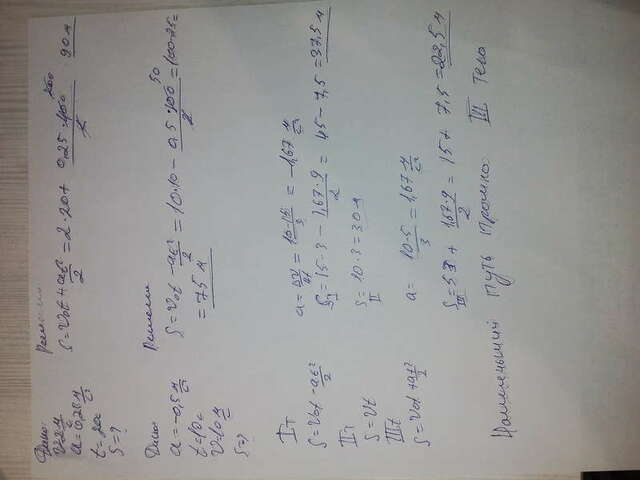 Дано:
v=2 м/с
a=0,25 м/с²
t=20с
S=?
Решение
S=v₀t+at²/2=2·20+ 0,25·400/2 90м
Дано
a=-0,5 м/с²
t=10с
v=10 м/с
S=?
Решение
S=v₀t-at²/2=10·10-0,5·100/2=100-25=
=75м
Iт
S=v₀t-at²/2
a=Δv/Δt=10-15/3=-1,67 м/с²
S=15·3-1,67·9/2=45-7,5=37,5м
IIт
S=vt
S=10·3=30м
II
IIIт
S=v₀t+at²/2
a= 10-5/3=1,67 м/с²
S=5·3+1,67·9/2=15+7,5=22,5м
III
Наименьший путь прошло III тело